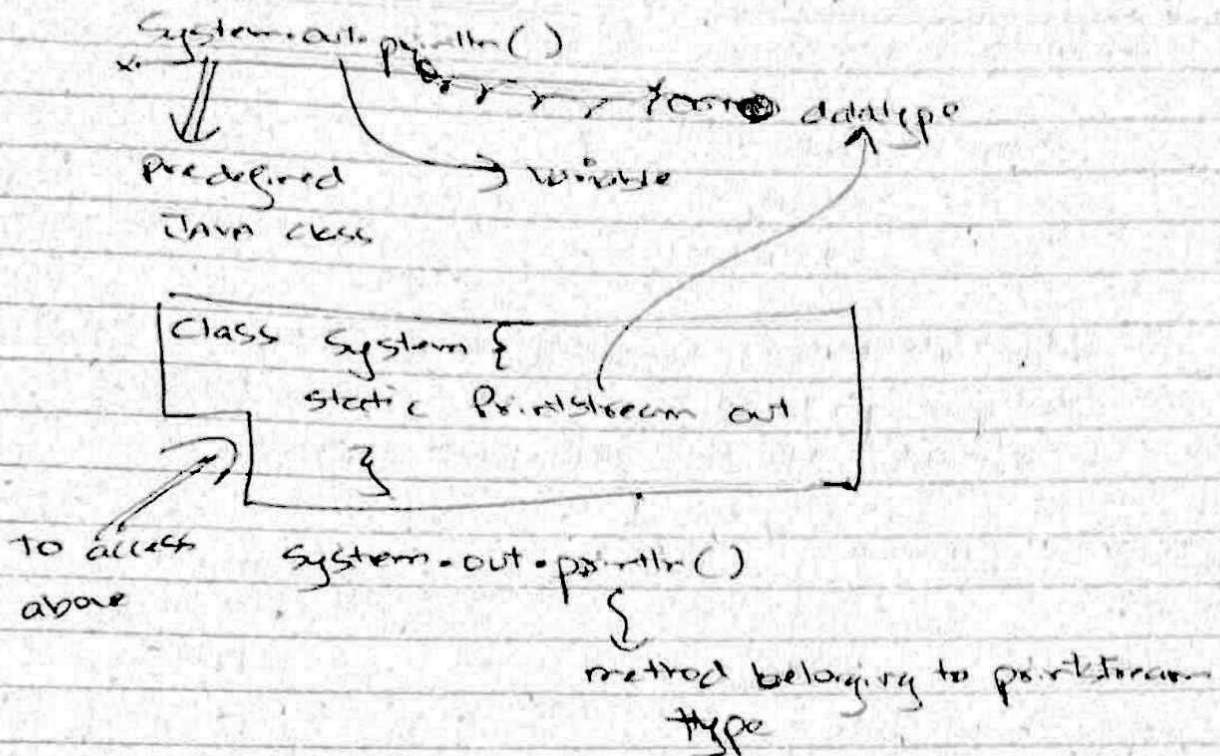 System.out.println()
datatype
predefined
variable
JAVA class
Class System {
static Printstream out
}
to access
above
System.out.println()
method belonging to printstream
type